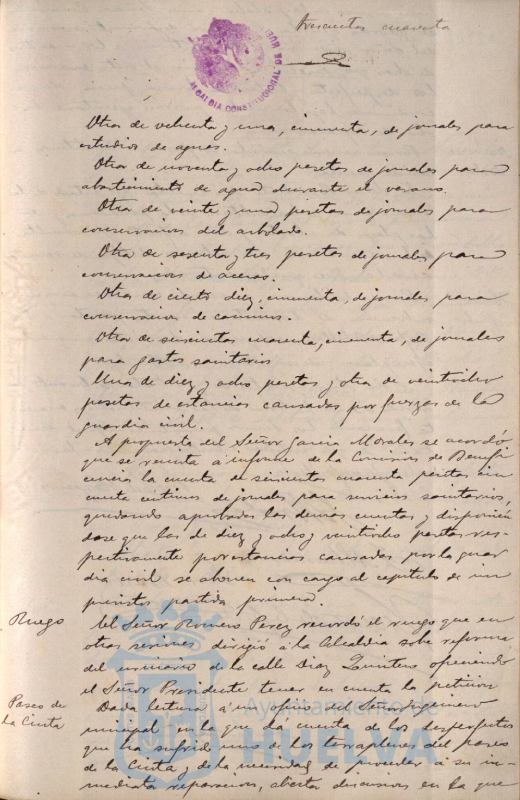 trescientos cuarenta
ALCALDIA CONSTITUCIONAL DE HUELVA
Otra de ochenta y una, cincuenta, de jornales para
estudios de aguas.
Otra de noventa y ocho pesetas de jornales para
abastecimiento de agua durante el verano.
Otra de veinte y una pesetas de jornales para
conservacion del arbolado.
Otra de sesenta y tres pesetas de jornales para
conservacion de aceras.
Otra de ciento diez, cincuenta, de jornales para
conservacion de caminos.
Otra de seiscientos cuarenta, cincuenta, de jornales
para gastos sanitarios
Una de diez y ocho pesetas y otra de veintiocho
pesetas de estancias causadas por fuerzas de la
guardia civil.
A propuesta del Señor Garcia Morales se acordó
que se remita á informe de la Comision de Benefi
cencia la cuenta de seiscientos cuarenta pesetas cin
cuenta centimos de jornales para servicios sanitarios,
quedando aprobadas las demás cuentas y disponien
dose que las de diez y ocho y veintiocho pesetas res-
pectivamente por estancias causadas por la guar
dia civil se abonen con cargo al capitulo de im
previstos partida primera.
Ruego
El Señor Romero Perez recordó el ruego que en
otras sesiones dirigió á la Alcaldia sobre reforma
del urinario de la calle Diaz Quintero ofreciendo
el Señor Presidente tener en cuenta la peticion
Paseo de
la Cinta
Dada lectura á un oficio del Señor Ingeniero
municipal en la que dá cuenta de los desperfectos
que ha sufrido uno de los terraplenes del paseo
de la Cinta y de la necesidad de proceder á su in-
mediata reparacion, abierta discusion en la que
Ayuntamiento de
HUELVA